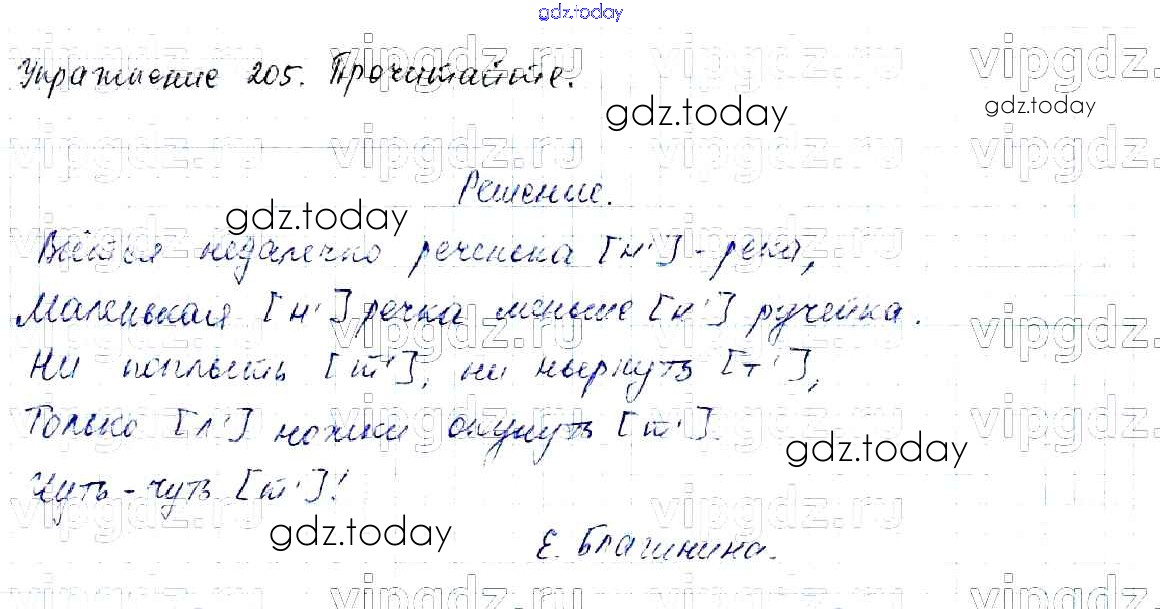 gdz.today
Упражнение 205. Прочитайте.
gdz.today
gdz.today
Решение.
gdz.today
недалечко реченька [н'] - река,
Маленькая [н'] речка меньше [н'] ручейка.
Ни поплыть [т'], ни нырнуть [т'],
Только [л'] ножки окунуть [т'].
gdz.today
Чуть-чуть [т']!
gdz.today
Е. Благинина.
vipgdz.ru